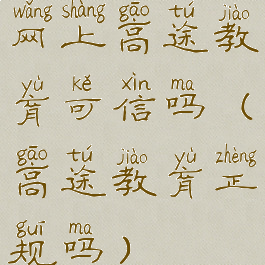 wǎng shàng gāo tú jiào
网上高途教
yù kě xìn ma
育可信吗（
gāo tú jiào yù zhèng
高途教育正
guī ma
规吗）